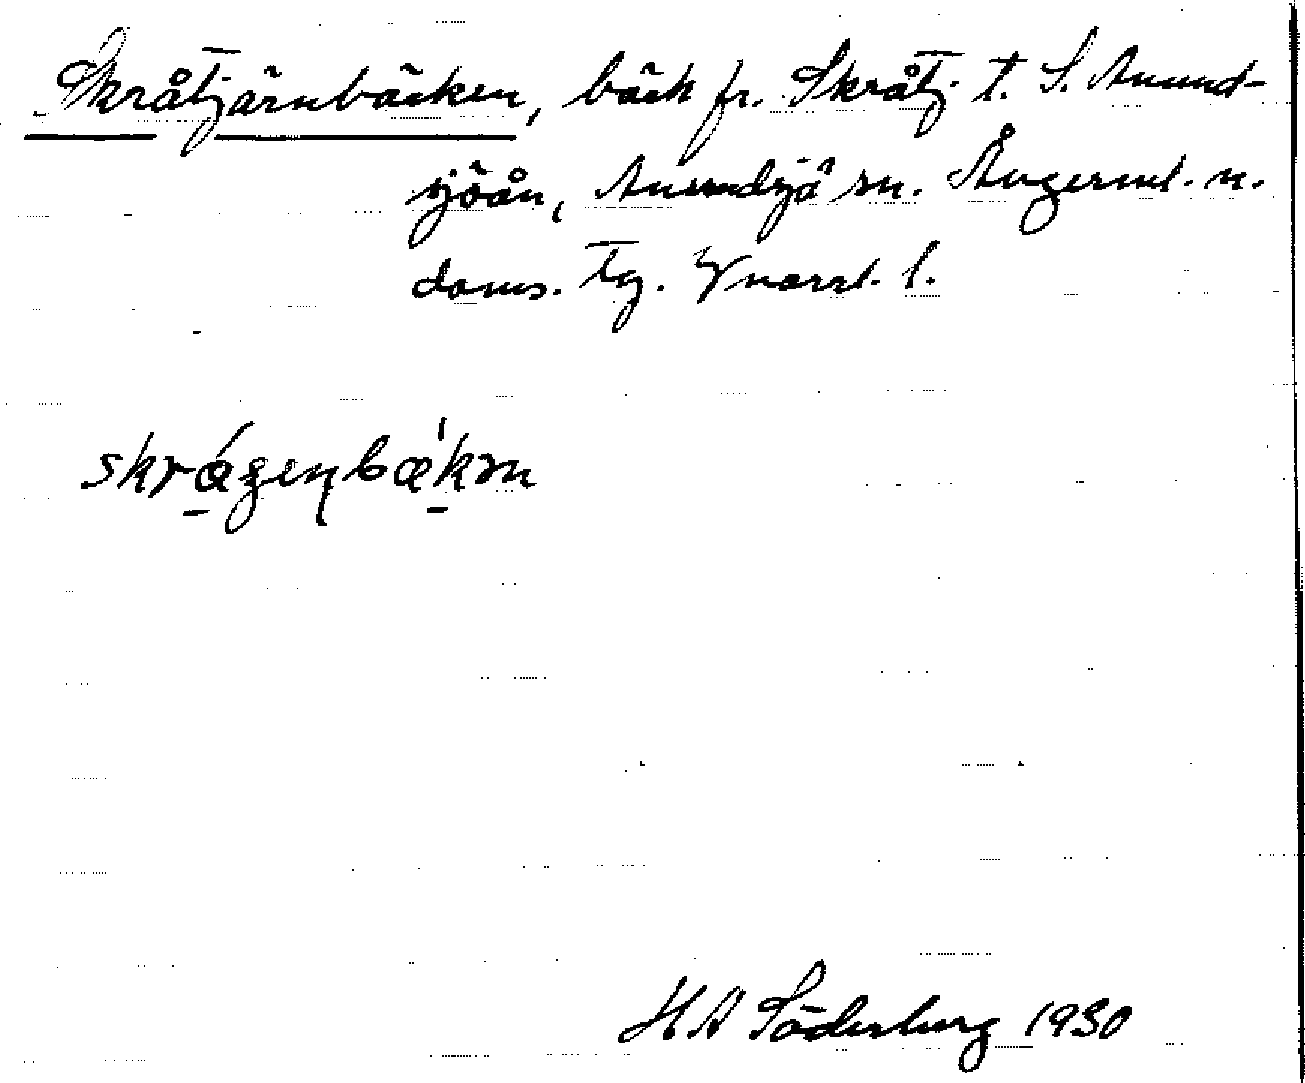 Skråtjärnbäcken, bäck fr. Skråtj. t. S. Anund-
sjöån, Anundsjö sn. Ångerml. n.
doms. Tg. Vnorrl. l.
skrázenbǽkən
H A Söderberg 1930